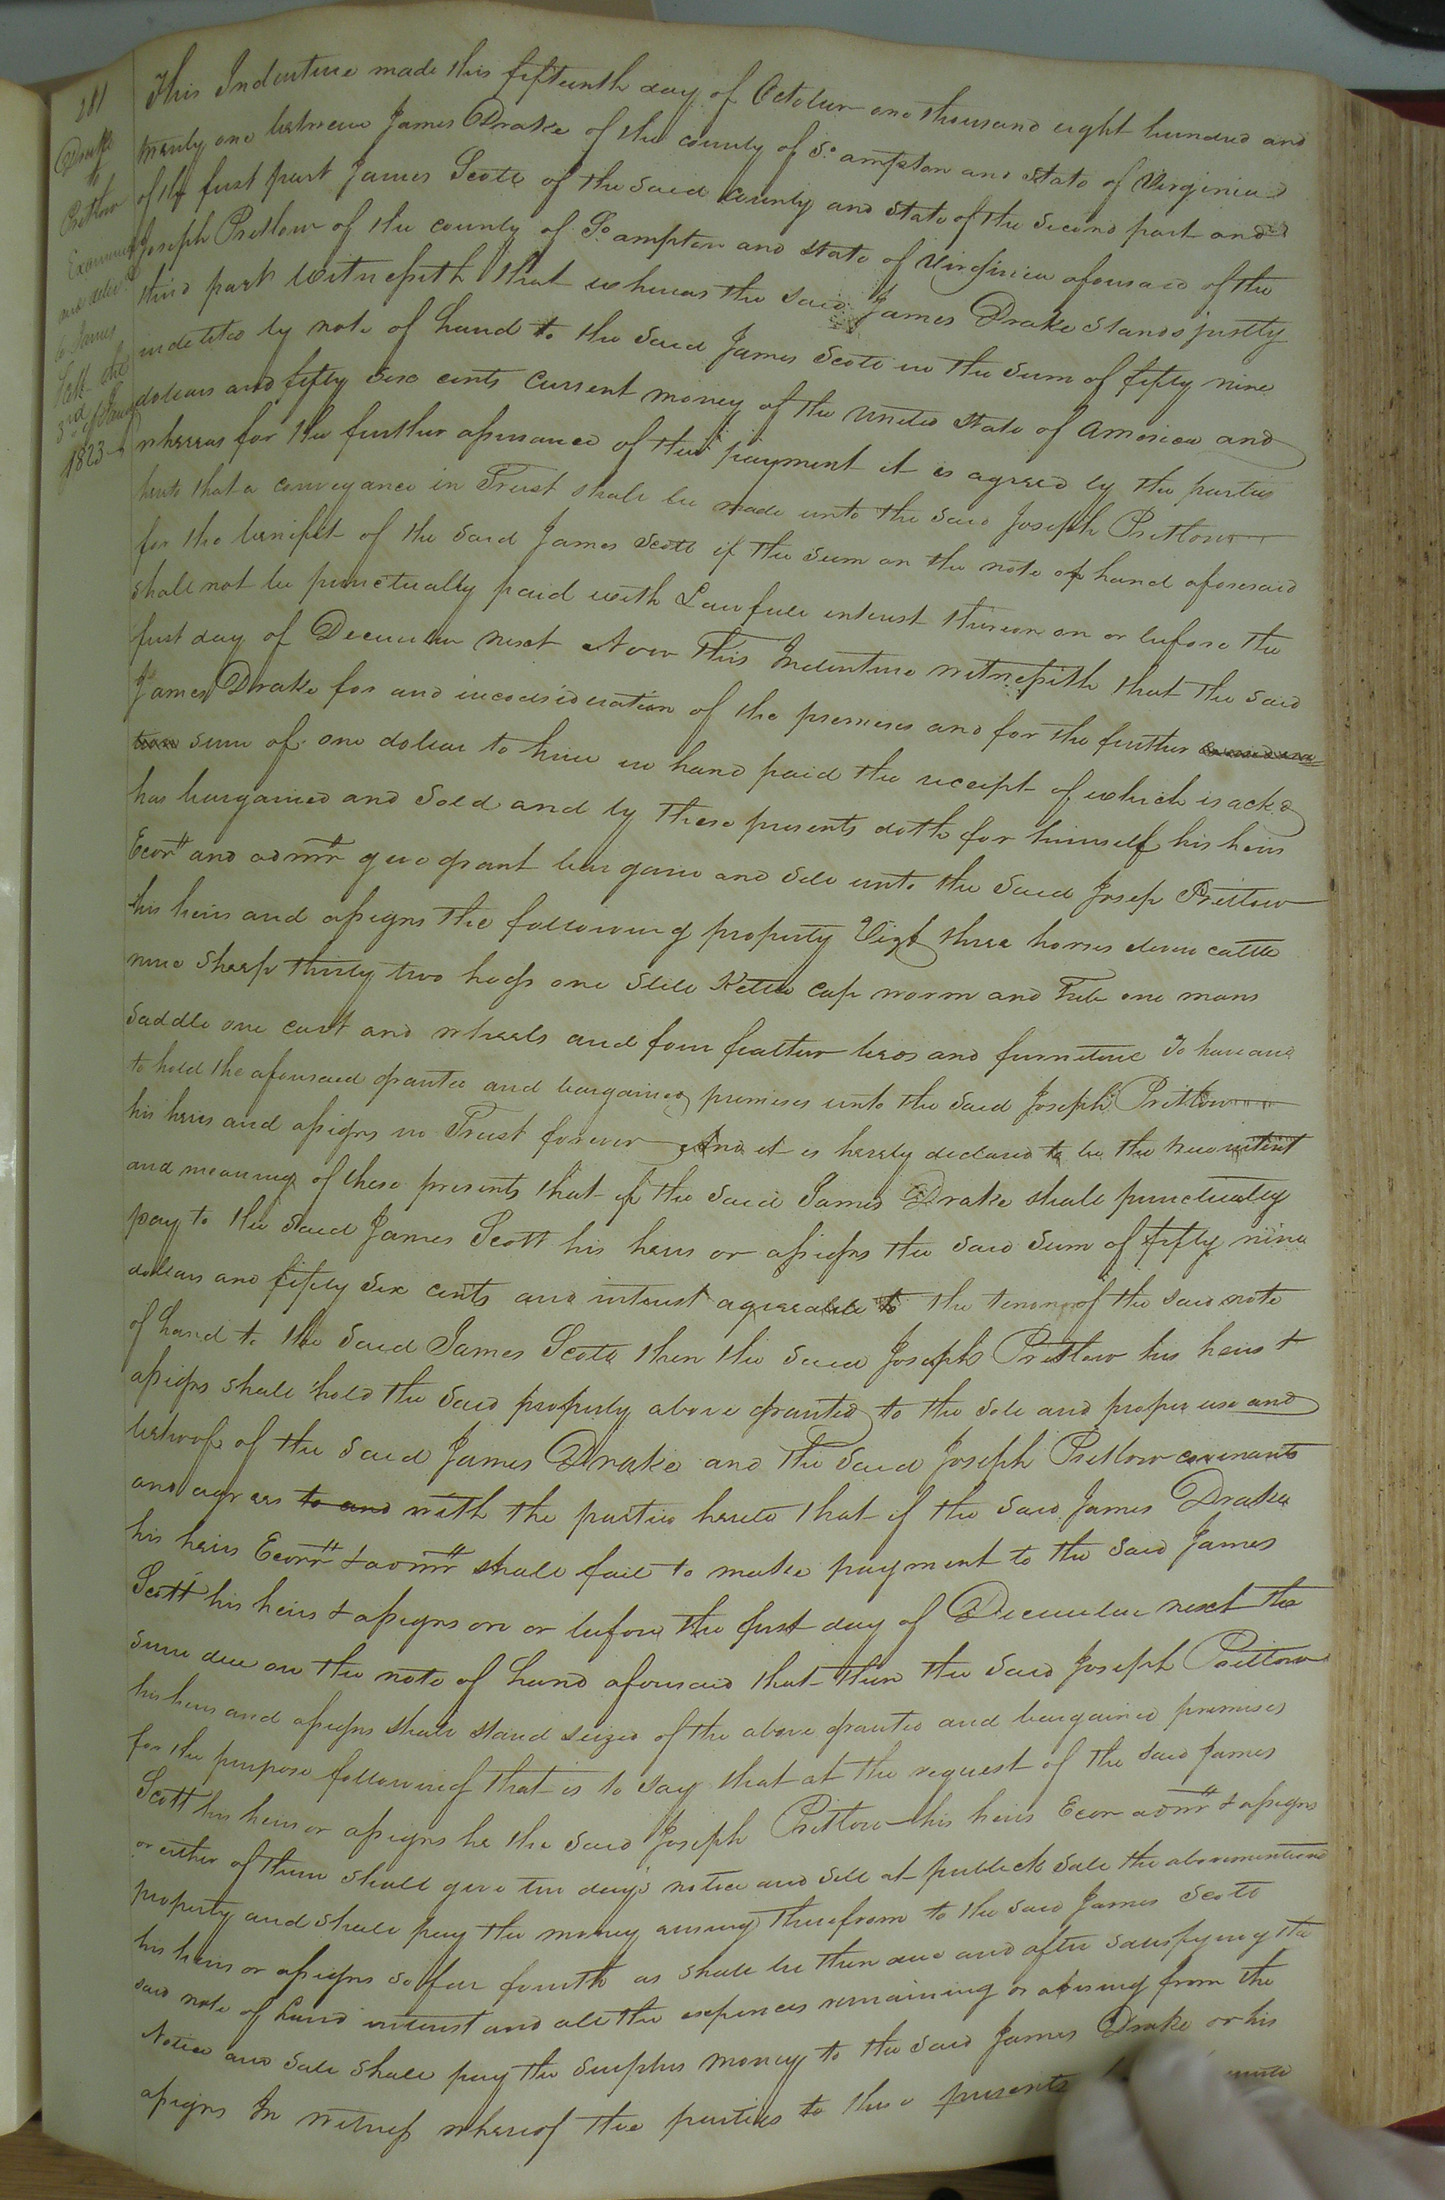 281
Drake
to
Pretlow
Examined
and deliv'd
to James
Scott the
3rd of
1823
This Indenture made this fifteenth day of October one thousand eight hundred and
twenty one between James Drake of the county of So ampton and State of Virginia
of the first part James Scott of the said County and State of the second part and
Joseph Pretlow of the county of So ampton and State of Virginia aforesaid of the
third part Witnesseth that whereas the said James Drake stands justly
indebted by note of hand to the said James Scott in the sum of fifty nine
dollars and fifty six cents Current money of the United State of America and
whereas for the further assurance of the payment it is agreed by the parties
hereto that a conveyance in Trust shall be made unto the said Joseph Pretlow
for the benifit of the said James Scott if the sum on the note of hand aforesaid
shall not be punctually paid with Lawfull interest thereon on or before the
first day of December next Now This Indenture witnesseth that the said
James Drake for and inconsideration of the premises and for the further
sum of one dollar to him in hand paid the receipt of which is ackd
has bargained and sold and by these presents doth for himself his heirs
Ecors and admrs give grant bargain and sell unto the said Josep Pretlow
his heirs and assigns the following property Vizt three horses eleven cattle
nine sheep thirty two hogs one Still Kettle cap worm and Tub one mans
saddle one cart and wheels and four feather beds and furniture To have and
to hold the aforesaid granted and bargained premises unto the said Joseph Pretlow
his heirs and assigns in Trust forever And it is hereby declared to be the true intent
and meaning of these presents that if the said James Drake shall punctually
pay to the said James Scott his heirs or assigns the said sum of fifty nine
dollars and fifty six cents and interest agreeable to the tenor of the said note
of hand to the said James Scott then the said Joseph Pretlow his heirs &
assigns shall hold the said property above granted to the sole and proper use and
behoof of the said James Drake and the said Joseph Pretlow covenants
and agrees to and with the parties hereto that if the said James Drake
his heirs Ecors & admrs shall fail to make payment to the said James
Scott his heirs & assigns on or before the first day of December next the
sum due on the note of hand aforesaid that then the said Joseph Pretlow
his heirs and assigns shall stand seized of the above granted and bargained premises
for the purpose following that is to say that at the request of the said James
Scott his heirs or assigns he the said Joseph Pretlow his heirs Ecor admrs & assigns
or either of them shall give ten days notice and sell at publick sale the abovementioned
property and shall pay the money arising therefrom to the said James Scott
his heirs or assigns so far fourth as shall be then due and after satisfying the
said note of hand interest and all the expences remaining or arising from the
Notice and sale shall pay the surplus money to the said James Drake or his
assigns In witness whereof the parties to these presents